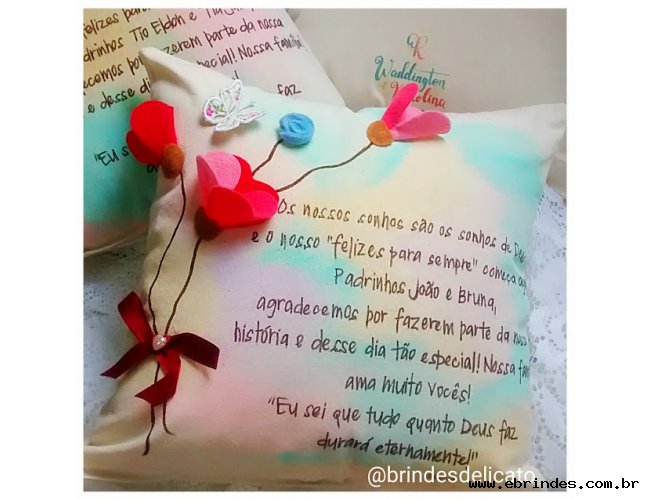 felizes para
adrinhos Tio Eldon e Tia
ecemos por fazerem parte da nossa
e desse dia tão especial! Nossa família
faz
"Eu s
WR
Waddington
Karolina
Os nossos sonhos são os sonhos de Deu
e o nosso "felizes para sempre" começa aq
Padrinhos João e Bruna,
agradecemos por fazerem parte da nossa
história e desse dia tão especial! Nossa fam
ama muito vocês!
"Eu sei que tudo quanto Deus faz
durará eternamente!"
@brindesdelicato
www.ebrindes.com.br